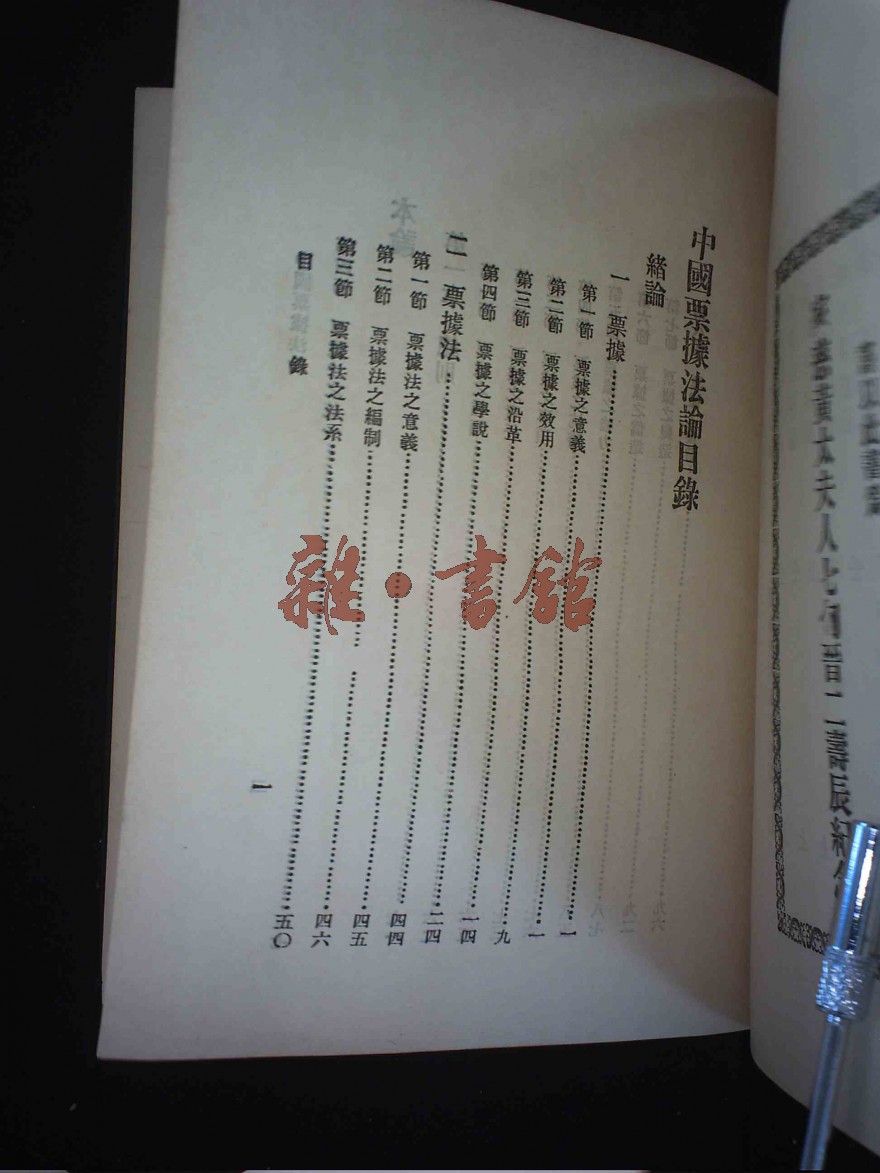 以此書
慈黃太夫人七旬晉二壽辰紀
中國票據法論目錄
緒論
一 票據……一
第一節 票據之意義……一
第二節 票據之效用……九
第三節 票據之沿革……一四
第四節 票據之學說……二四
二 票據法……四四
第一節 票據法之意義……四四
第二節 票據法之編制……四五
第三節 票據法之法系……五〇
目 錄
一
雜·書館